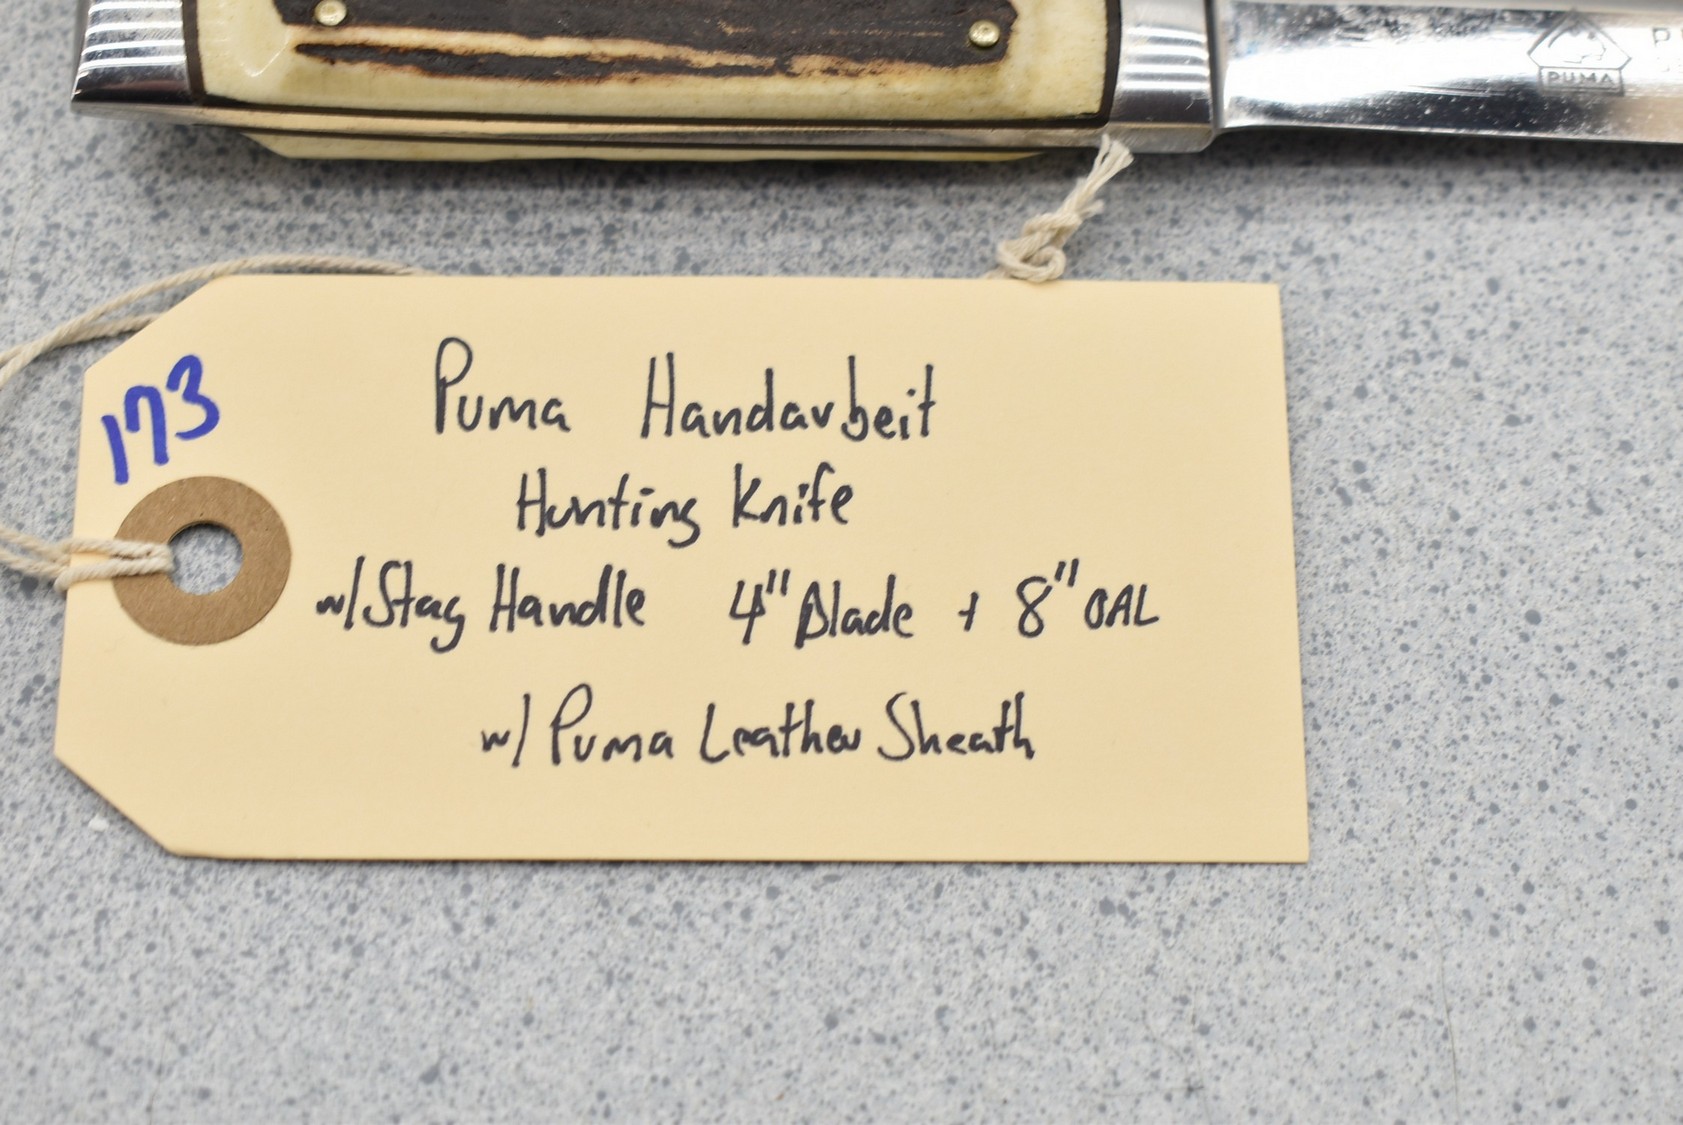 PUMA
173
Puma Handarbeit
Hunting Knife
w/Stag Handle 4" Blade + 8" OAL
w/ Puma Leather Sheath